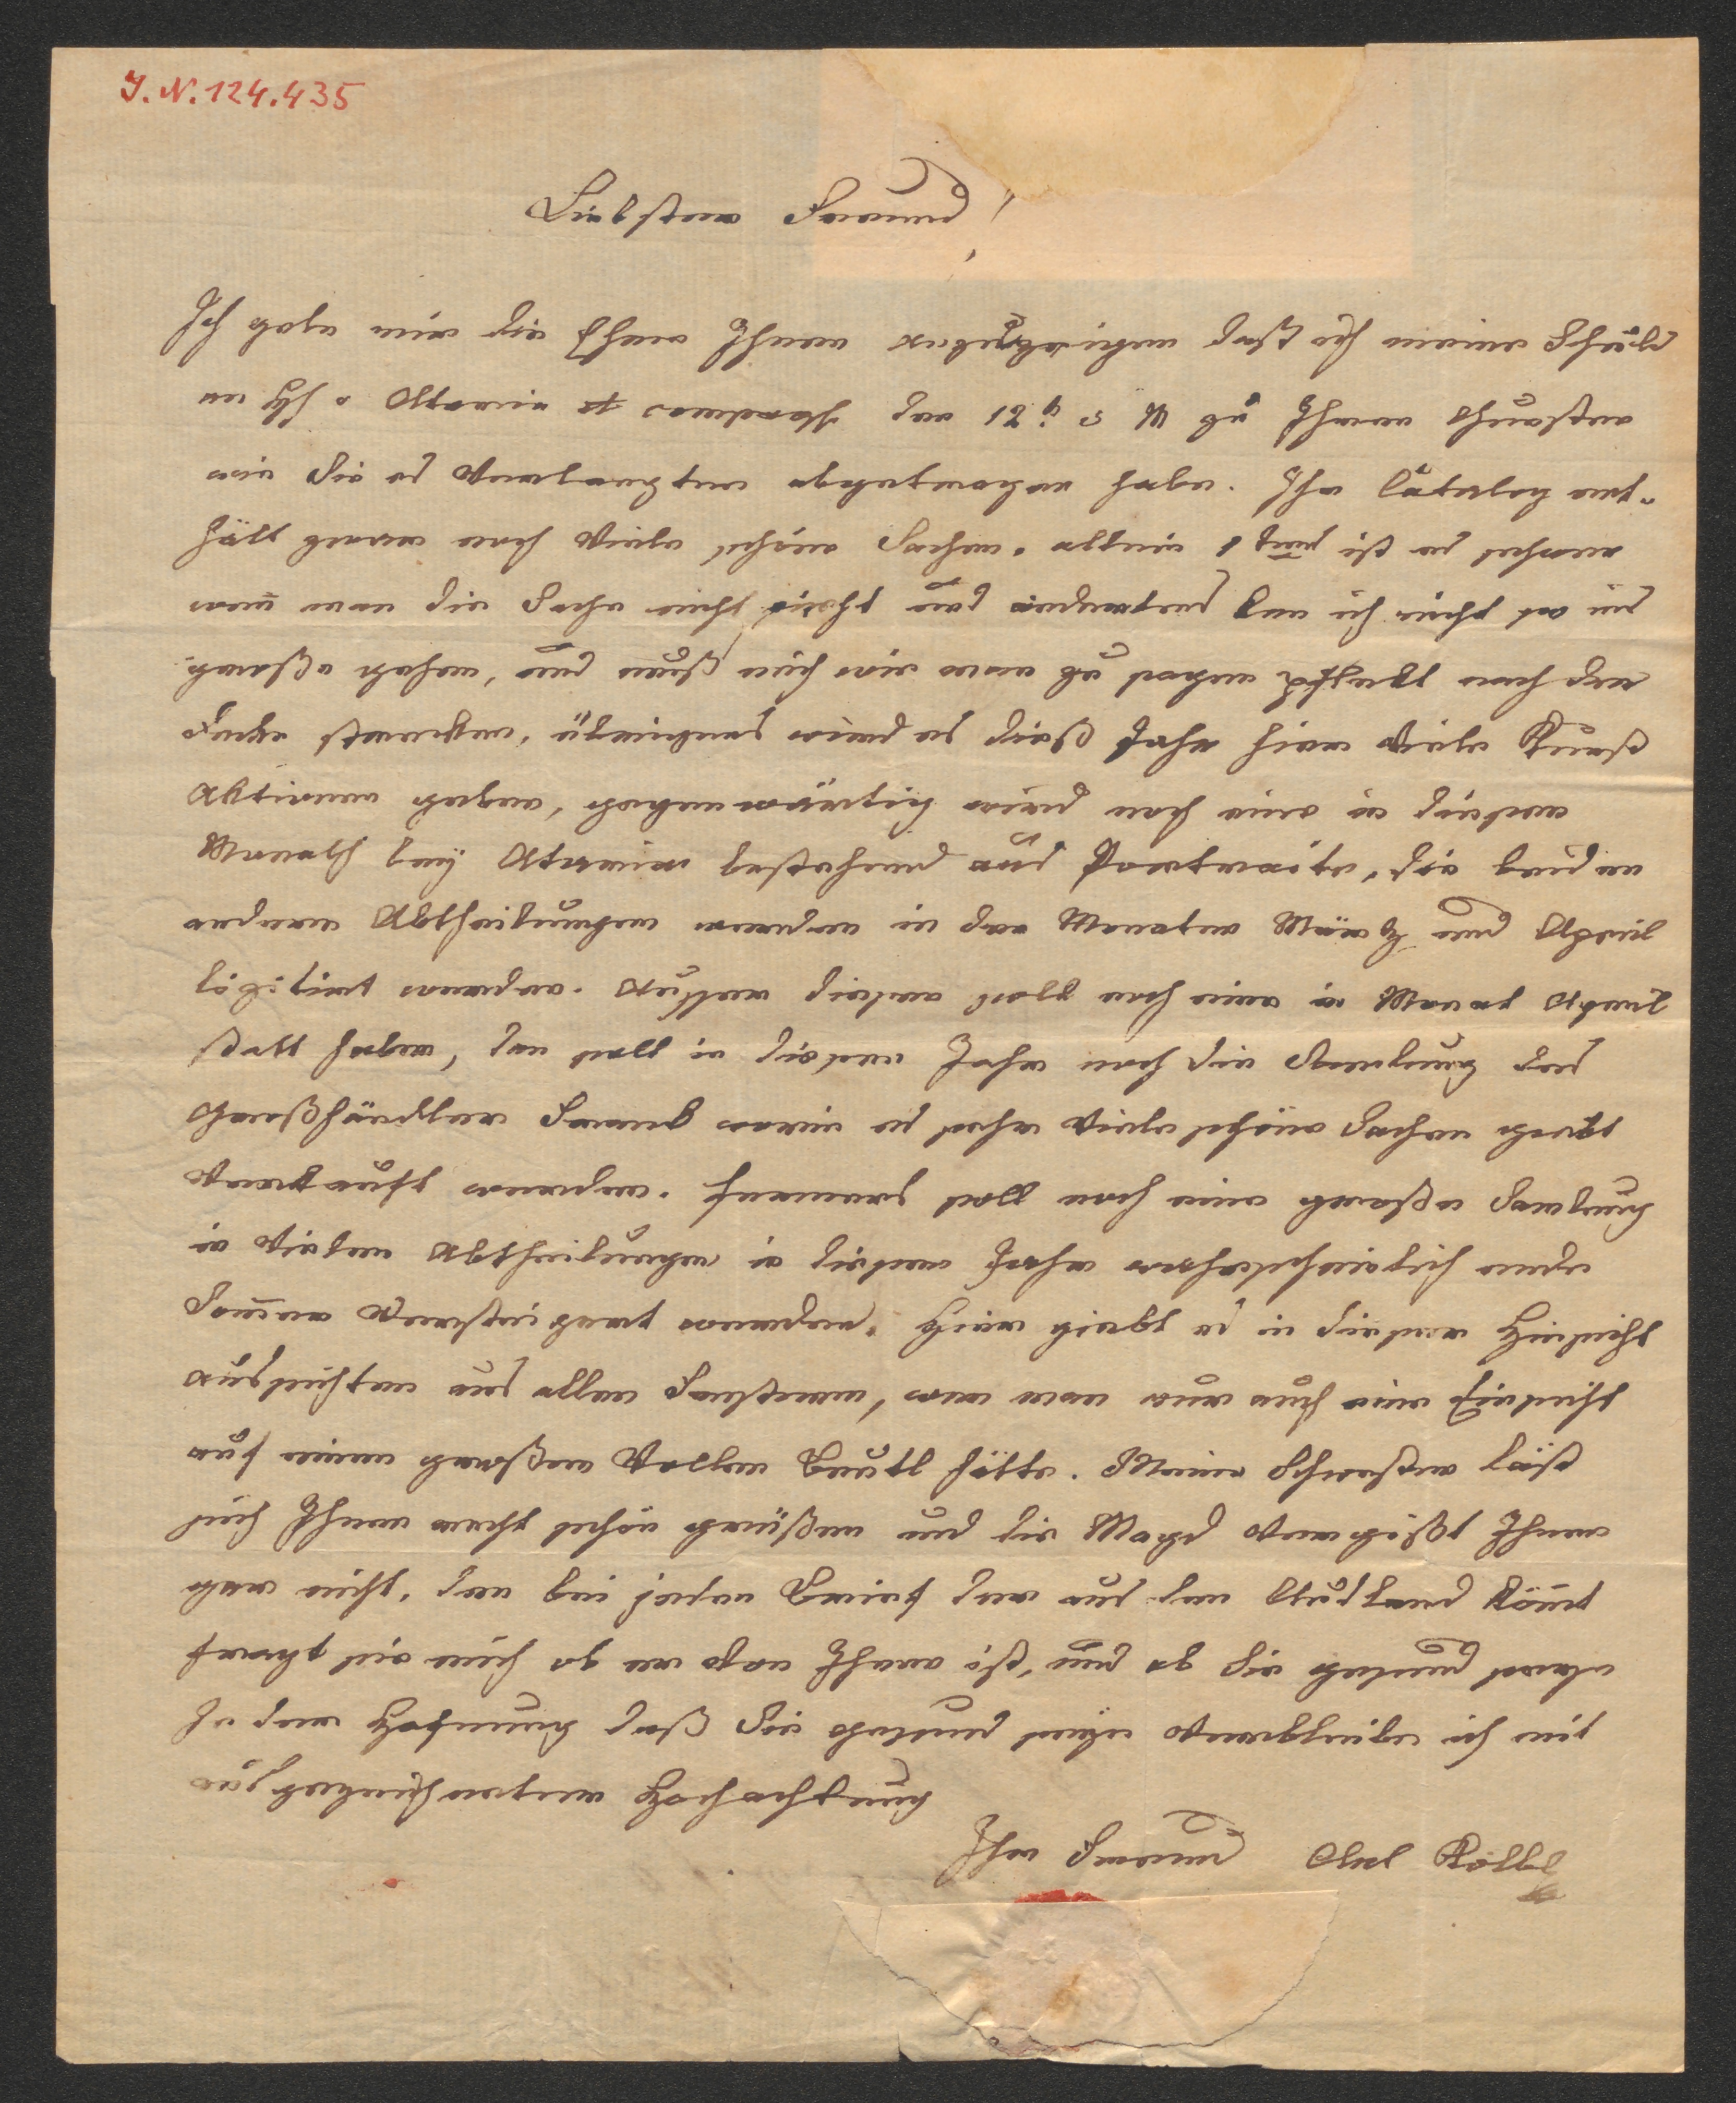 I. N. 124.435
Liebster Freund!
Ich gebe mir die Ehre Ihnen anzuzeigen daß ich meine Schuld
an H Artaria et compagh den 12t d M zu Ihren Gunsten
wie Sie es Verlangten abgetragen habe. Ihr Catalog ent-
hält zwar noch Viele schöne Sachen. allein 1tens ist es schwer
wen̄ man die Sache nicht sieht und andertens kan ich nicht so ins
große gehen, und muß mich wie man zu sagen pflekt nach der
Decke strecken, übrigens wird es dieß Jahr hier Viele Kunst
Aktionen geben, gegenwärtig wird noch eine in diesen
Monath bey Artaria bestehend aus Portraite, die beiden
andern Abtheilungen werden in den Monaten März und April
lizitirt werden. Ausser diesen soll noch eine in Monat April
statt haben, dan soll in diesen Jahr noch die Samlung des
Großhändler Frank worin es sehr Viele schöne Sachen giebt
Verkauft werden. Fernners soll noch eine große Samlung
in Vielen Abtheilungen in diesen Jahr wahrscheinlich ende
Som̄er Versteigert werden. Hier giebt es in dieser Hinsicht
aussichten aus allen Fenstern, wen man nur auch eine Einsicht
auf einen großen Vollen Beutl hätte. Meine Schwester läßt
sich Ihnen recht schön grüßen und die Magd Vergißt Ihnen
gar nicht, den bei jeden Brief der aus den Ausland köm̄t
fragt sie mich ob er Von Ihnen ist, und ob Sie gesund seyn
In der Hofnung daß Sie gesund seyn Verbleibe ich mit
ausgezeichneter Hochachtung
Ihr Freund Kölbl